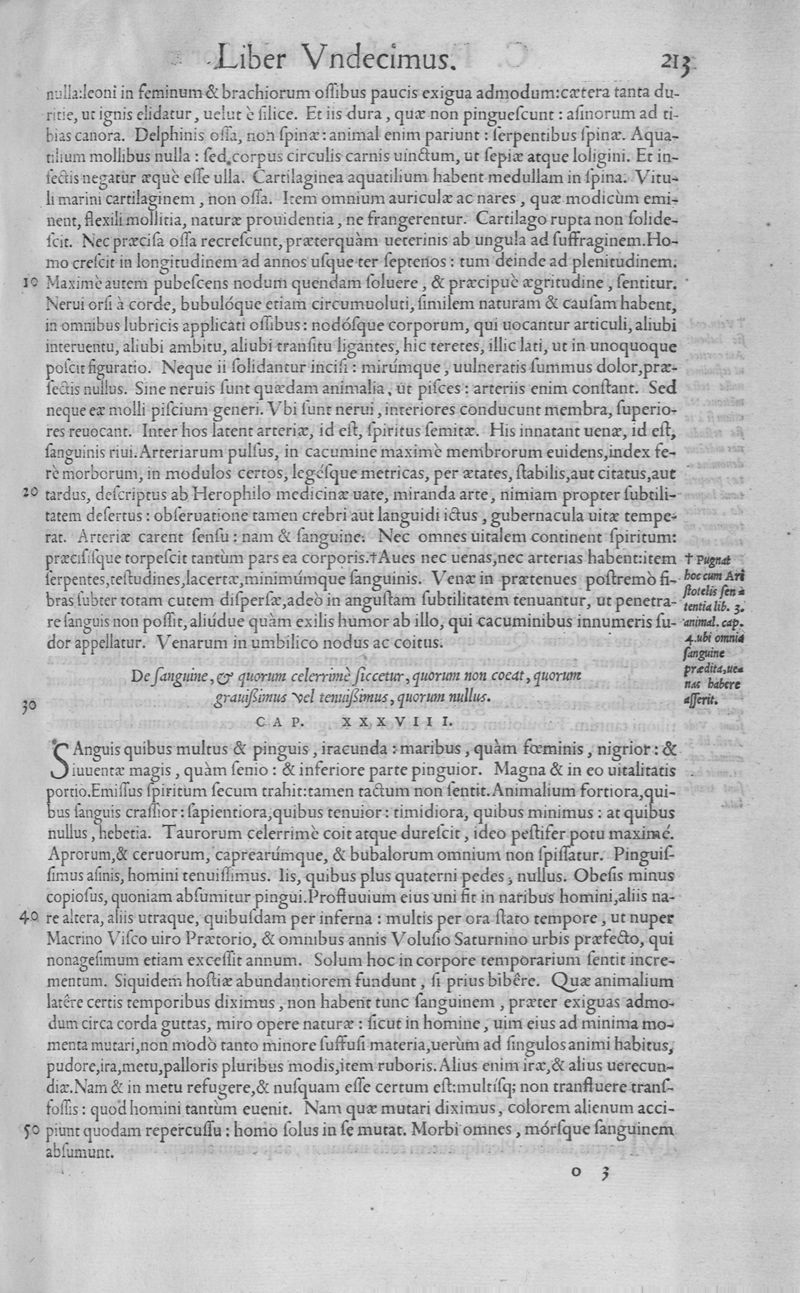 Liber Vndecimus. 213
nulla:leoni in feminum & brachiorum oſſibus paucis exigua admodum:cætera tanta du-
ritie, ut ignis elidatur, uelut è ſilice. Et iis dura, quæ non pingueſcunt : aſinorum ad ti-
bias canora. Delphinis oſſa, non ſpinæ: animal enim pariunt : ſerpentibus ſpinæ. Aqua-
tilium mollibus nulla : ſed corpus circulis carnis uinctum, ut ſepiæ atque loligini. Et in-
ſectis negatur æquè eſſe ulla. Cartilaginea aquatilium habent medullam in ſpina. Vitu-
li marini cartilaginem, non oſſa. Item omnium auriculæ ac nares, quæ modicùm emi-
nent, flexili mollitia, naturæ prouidentia, ne frangerentur. Cartilago rupta non ſolide-
ſcit. Nec præciſa oſſa recreſcunt, præterquàm ueterinis ab ungula ad ſuffraginem.Ho-
mo creſcit in longitudinem ad annos uſque ter ſeptenos : tum deinde ad plenitudinem.
10 Maximè autem pubeſcens nodum quendam ſoluere, & præcipuè ægritudine, ſentitur.
Nerui orſi à corde, bubulóque etiam circumuoluti, ſimilem naturam & cauſam habent,
in omnibus lubricis applicati oſſibus: nodóſque corporum, qui uocantur articuli, aliubi
interuentu, aliubi ambitu, aliubi tranſitu ligantes, hic teretes, illic lati, ut in unoquoque
poſcit figuratio. Neque ii ſolidantur inciſi : mirúmque, uulneratis ſummus dolor, præ-
ſectis nullus. Sine neruis ſunt quædam animalia, ut piſces : arteriis enim conſtant. Sed
neque ex molli piſcium generi. Vbi ſunt nerui, interiores conducunt membra, ſuperio-
res reuocant. Inter hos latent arteriæ, id eſt, ſpiritus ſemitæ. His innatant uenæ, id eſt,
ſanguinis riui. Arteriarum pulſus, in cacumine maximè membrorum euidens,index fe-
rè morborum, in modulos certos, legéſque metricas, per ætates, ſtabilis,aut citatus,aut
20 tardus, deſcriptus ab Herophilo medicinæ uate, miranda arte, nimiam propter ſubtili-
tatem deſertus : obſeruatione tamen crebri aut languidi ictus, gubernacula uitæ tempe-
rat. Arteriæ carent ſenſu : nam & ſanguine. Nec omnes uitalem continent ſpiritum:
præciſiſque torpeſcit tantùm pars ea corporis.†Aues nec uenas,nec arterias habent:item
ſerpentes,teſtudines,lacertæ,minimúmque ſanguinis. Venæ in prætenues poſtremò fi-
bras ſubter totam cutem diſperſæ,adeò in anguſtam ſubtilitatem tenuantur, ut penetra-
re ſanguis non poſſit, aliúdue quàm exilis humor ab illo, qui cacuminibus innumeris ſu-
dor appellatur. Venarum in umbilico nodus ac coitus.
† Pugnat
hoc cum Ari
ſtotelis ſen
tentia lib. 3.
animal. cap.
4. ubi omnia
ſanguine
prædita,ue
nas habere
aſſerit.
De ſanguine, & quorum celerrimè ſiccetur, quorum non coeat, quorum
30 grauißimus vel tenuißimus, quorum nullus.
CAP. XXXVIII.
SAnguis quibus multus & pinguis, iracunda : maribus, quàm fœminis, nigrior: &
iuuentæ magis, quàm ſenio : & inferiore parte pinguior. Magna & in eo uitalitatis
portio.Emiſſus ſpiritum ſecum trahit:tamen tactum non ſentit.Animalium fortiora,qui-
bus ſanguis craſſior: ſapientiora,quibus tenuior: timidiora, quibus minimus : at quibus
nullus, hebetia. Taurorum celerrimè coit atque dureſcit, ideo peſtifer potu maximè.
Aprorum,& ceruorum, caprearúmque, & bubalorum omnium non ſpiſſatur. Pinguiſ-
ſimus aſinis, homini tenuiſſimus. Iis, quibus plus quaterni pedes, nullus. Obeſis minus
copioſus, quoniam abſumitur pingui.Profluuium eius uni fit in naribus homini,aliis na-
40 re altera, aliis utraque, quibuſdam per inferna : multis per ora ſtato tempore, ut nuper
Macrino Viſco uiro Prætorio, & omnibus annis Voluſio Saturnino urbis præfecto, qui
nonageſimum etiam exceſſit annum. Solum hoc in corpore temporarium ſentit incre-
mentum. Siquidem hoſtiæ abundantiorem fundunt, ſi prius bibêre. Quæ animalium
latêre certis temporibus diximus, non habent tunc ſanguinem, præter exiguas admo-
dum circa corda guttas, miro opere naturæ : ſicut in homine, uim eius ad minima mo-
menta mutari,non modò tanto minore ſuffuſi materia,uerùm ad ſingulos animi habitus,
pudore,ira,metu,palloris pluribus modis,item ruboris.Alius enim iræ,& alius uerecun-
diæ.Nam & in metu refugere,& nuſquam eſſe certum eſt:multiſq; non tranfluere tranſ-
foſſis : quod homini tantùm euenit. Nam quæ mutari diximus, colorem alienum acci-
50 piunt quodam repercuſſu : homo ſolus in ſe mutat. Morbi omnes, mórſque ſanguinem
abſumunt.
o 3